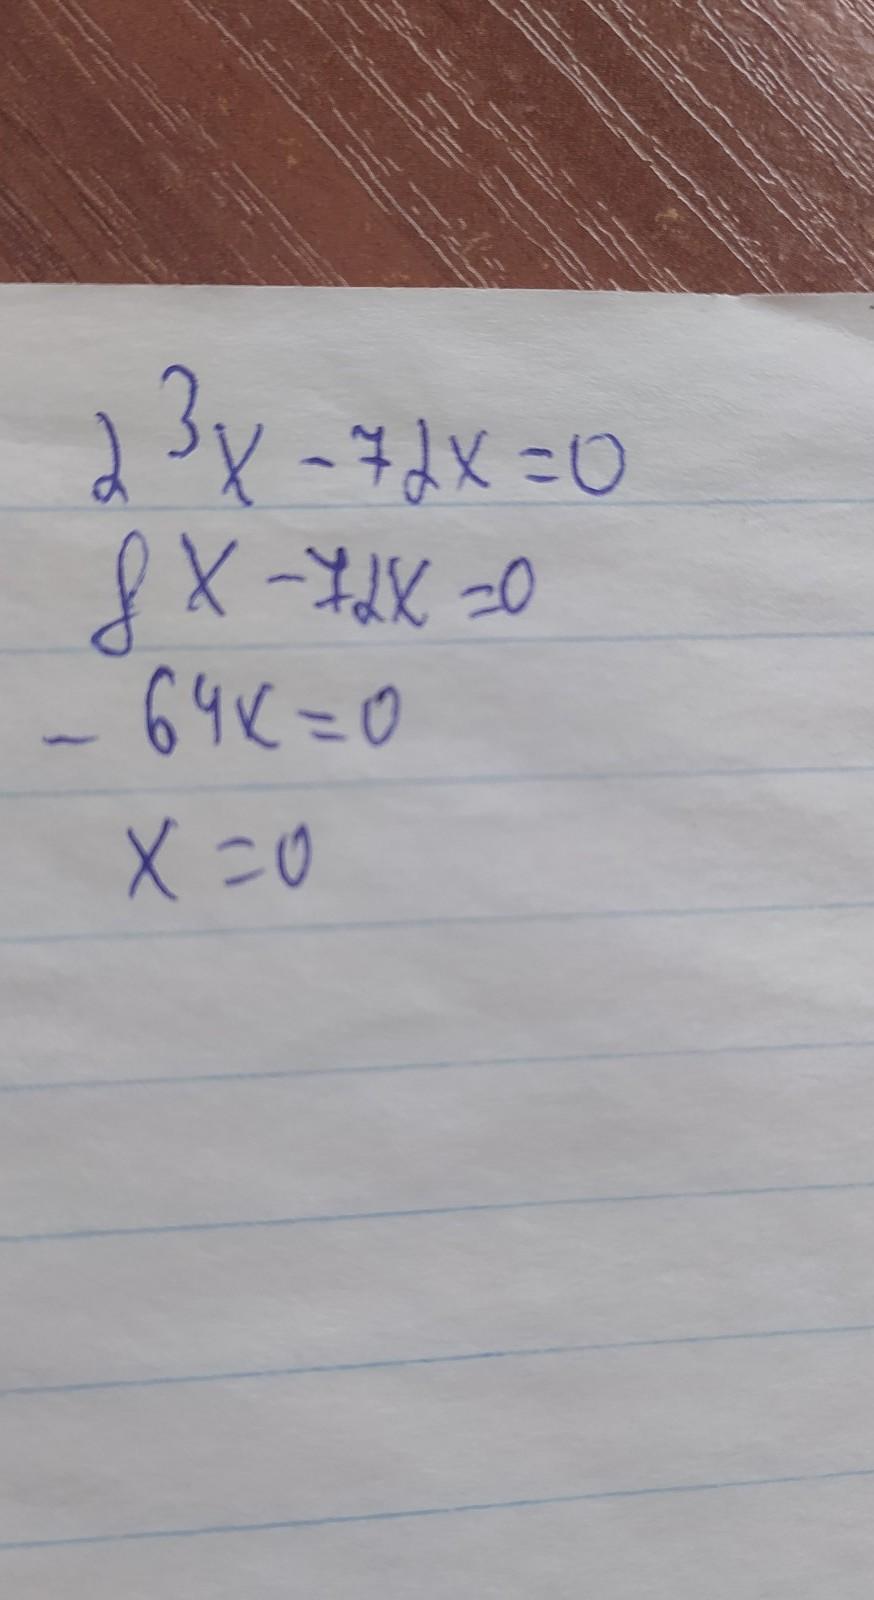 2³x - 72x = 0
8x - 72x = 0
- 64x = 0
x = 0